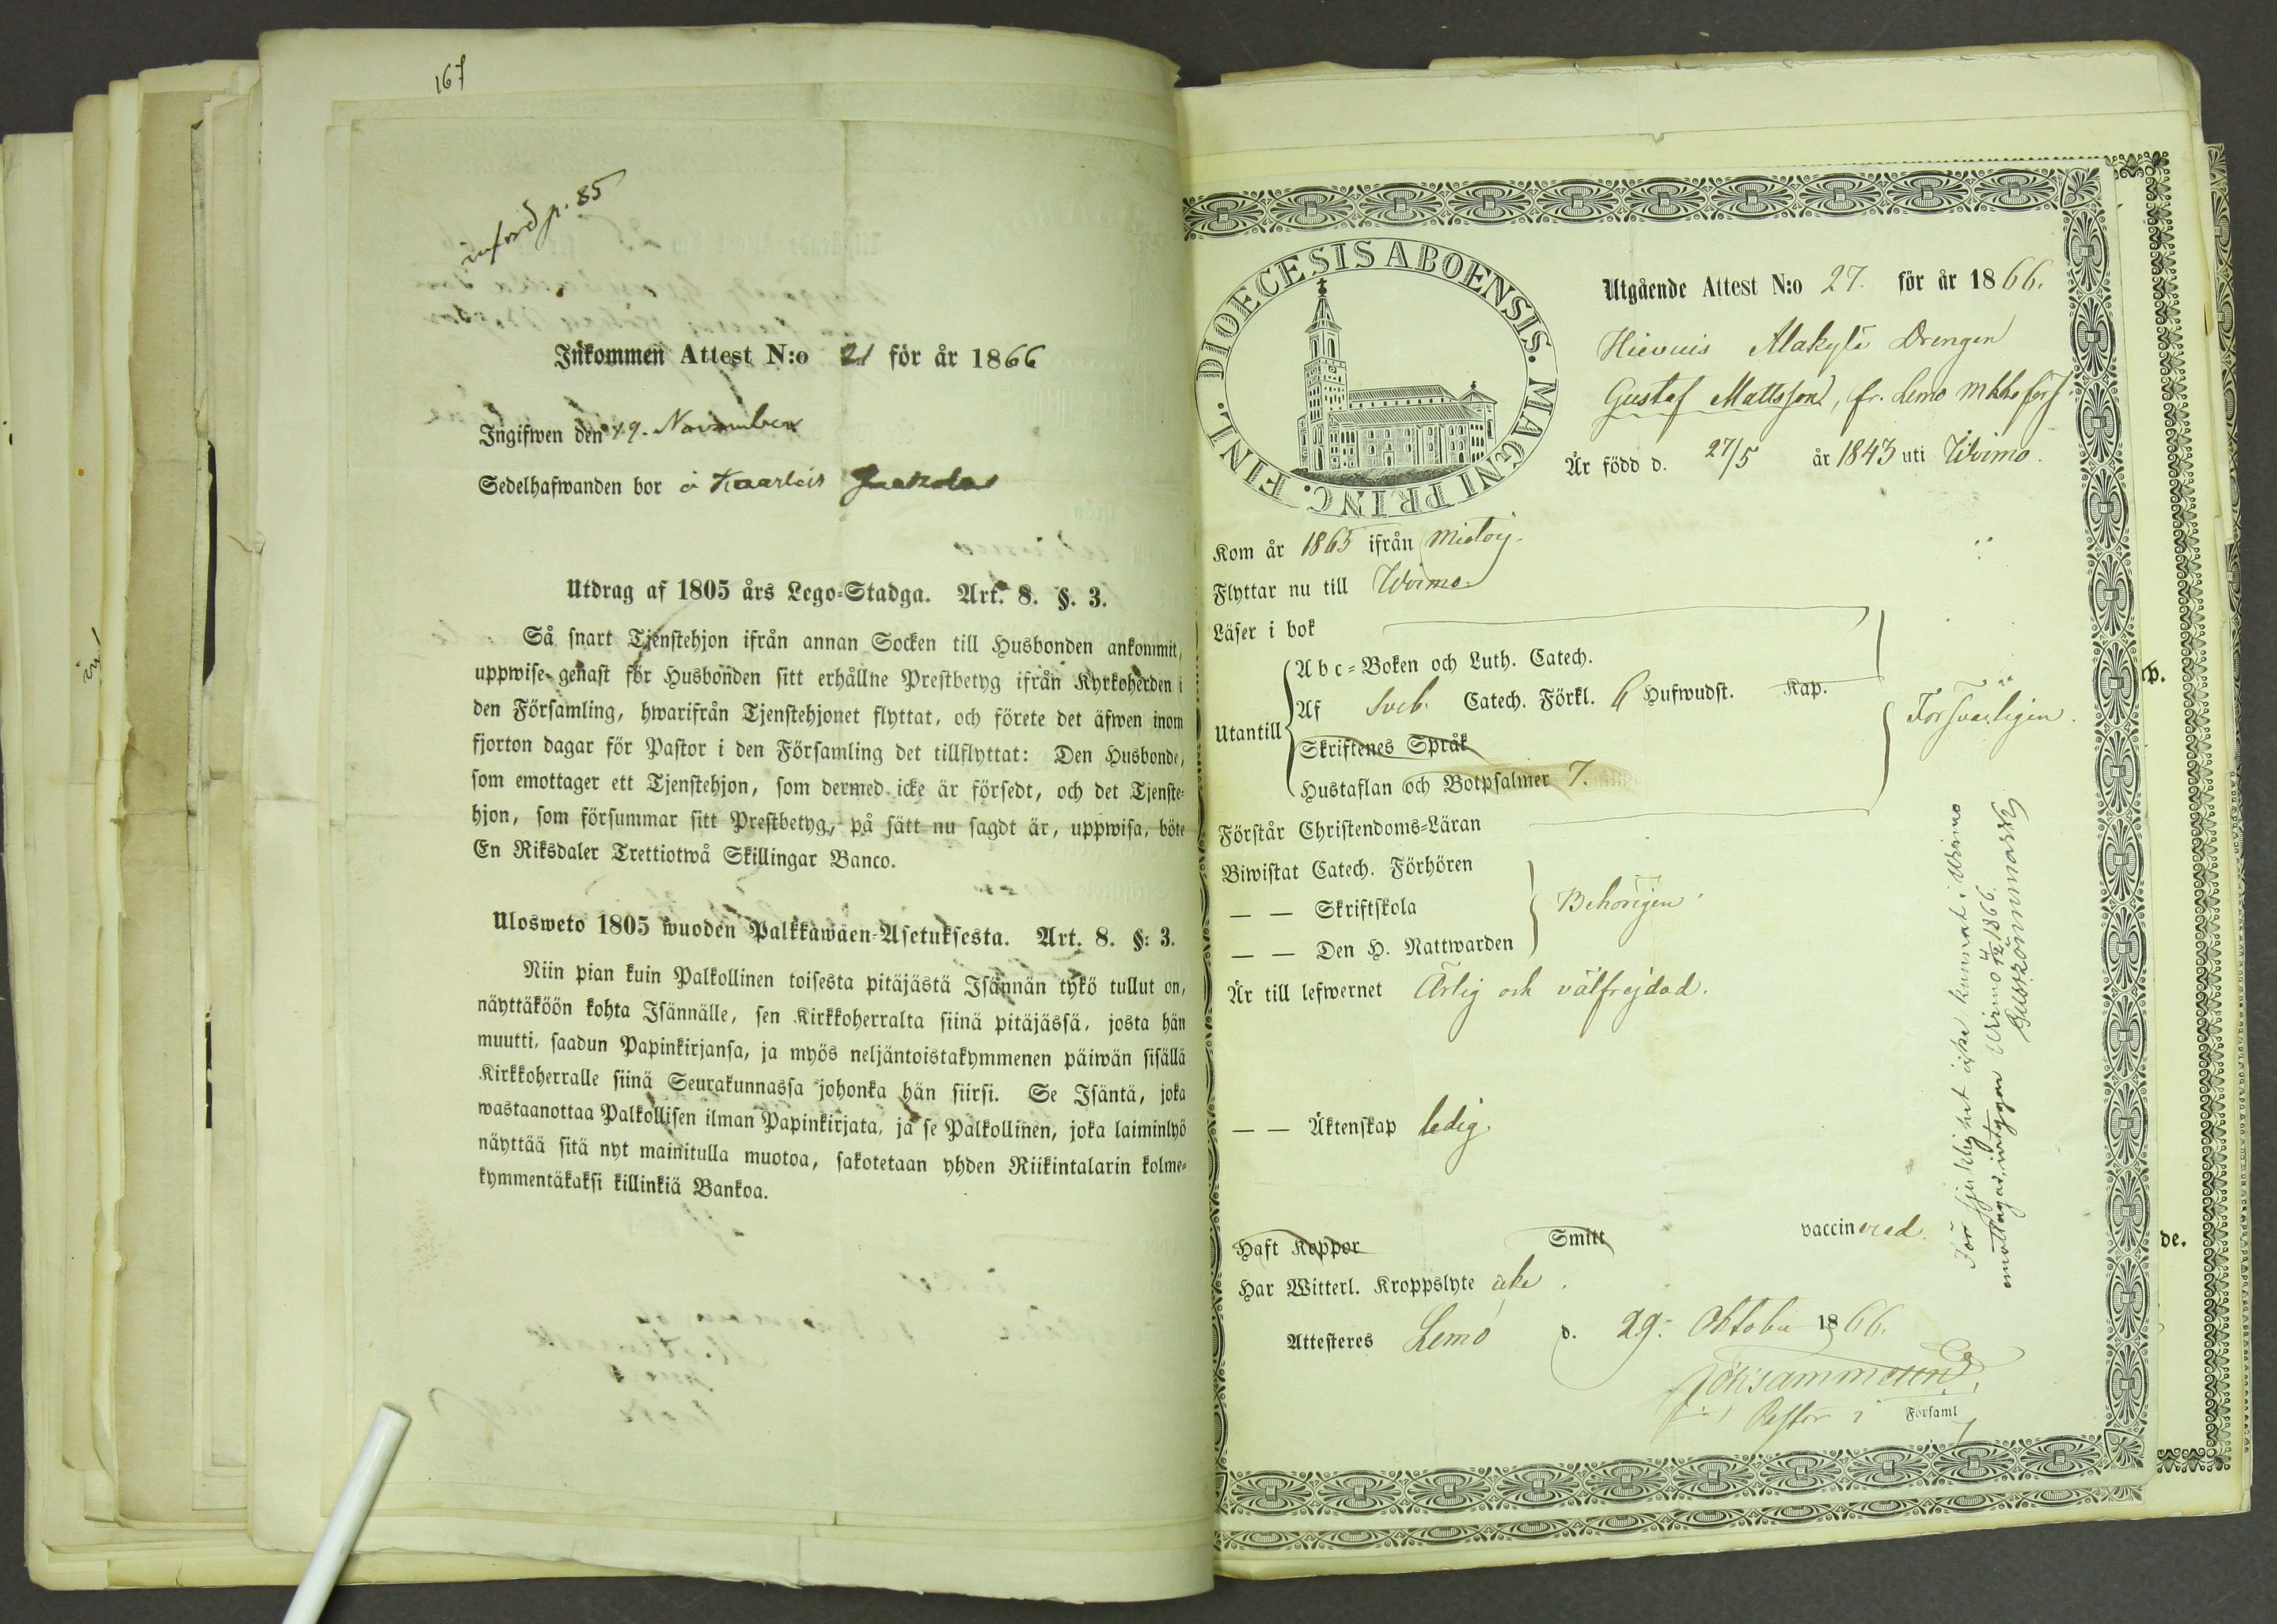 167
införd p. 85
Inkommen Attest N:o 21 för år 1866
Ingifwen den 19. November
Sedelhafwanden bor å Kaarlois Jaakola
Utdrag af 1805 års Lego-Stadga. Art. 8. §. 3.
Så snart Tjenstehjon ifrån annan Socken till Husbonden ankommit,
uppwise genast för Husbonden sitt erhållne Prestbetyg ifrån Kyrkoherden i
den Församling, hwarifrån Tjenstehjonet flyttat, och förete det äfwen inom
fjorton dagar för Pastor i den Församling det tillflyttat: Den Husbonde,
som emottager ett Tjenstehjon, som dermed icke är försedt, och det Tjenste-
hjon, som försummar sitt Prestbetyg, på sätt nu sagdt är, uppwisa, böte
En Riksdaler Trettiotwå Skillingar Banco.
Ulosweto 1805 wuoden Palkkawäen-Asetuksesta. Art. 8. §: 3.
Niin pian kuin Palkollinen toisesta pitäjästä Isännän tykö tullut on,
näyttäköön kohta Isännälle, sen Kirkkoherralta siinä pitäjässä, josta hän
muutti, saadun Papinkirjansa, ja myös neljäntoistakymmenen päiwän sisällä
Kirkkoherralle siinä Seurakunnassa johonka hän siirsi. Se Isäntä, joka
wastaanottaa Palkollisen ilman Papinkirjata, ja se Palkollinen, joka laiminlyö
näyttää sitä nyt mainitulla muotoa, sakotetaan yhden Riikintalarin kolme-
kymmentäkaksi killinkiä Bankoa.
DIOECESIS ABOENSIS. MAGNI PRINC. FINL.
Utgående Attest N:o 27. för år 1866.
Hievuis Alakylä Drengen
Gustaf Mattsson, fr. Lemo
Är född d. 27/5 år 1843 uti Wirmo.
Kom år 1865 ifrån Mietois
Flyttar nu till Wirmo
Läser i bok
Abc-Boken och Luth. Catech.
Utantill Af Sveb. Catech. Förkl. 6 Hufwudst. Kap.
Skriftenes Språk
Försvarligen.
Hustaflan och Botpsalmer 7.
Förstår Christendoms-Läran
Biwistat Catech. Förhören
— — Skriftskola Behörigen
— — Den H. Nattwarden
Är till lefwernet Ärlig och välfrejdad.
— — Äktenskap ledig.
Haft Koppor Smitt vaccinerad
Har Witterl. Kroppslyte icke.
Attesteres Lemo d. 29. Oktober 1866.
Pastor i Församl
För skjutlighet icke kunnat i Wirmo
emottagas, intygar Wirmo 4/12 1866.
p.
de.